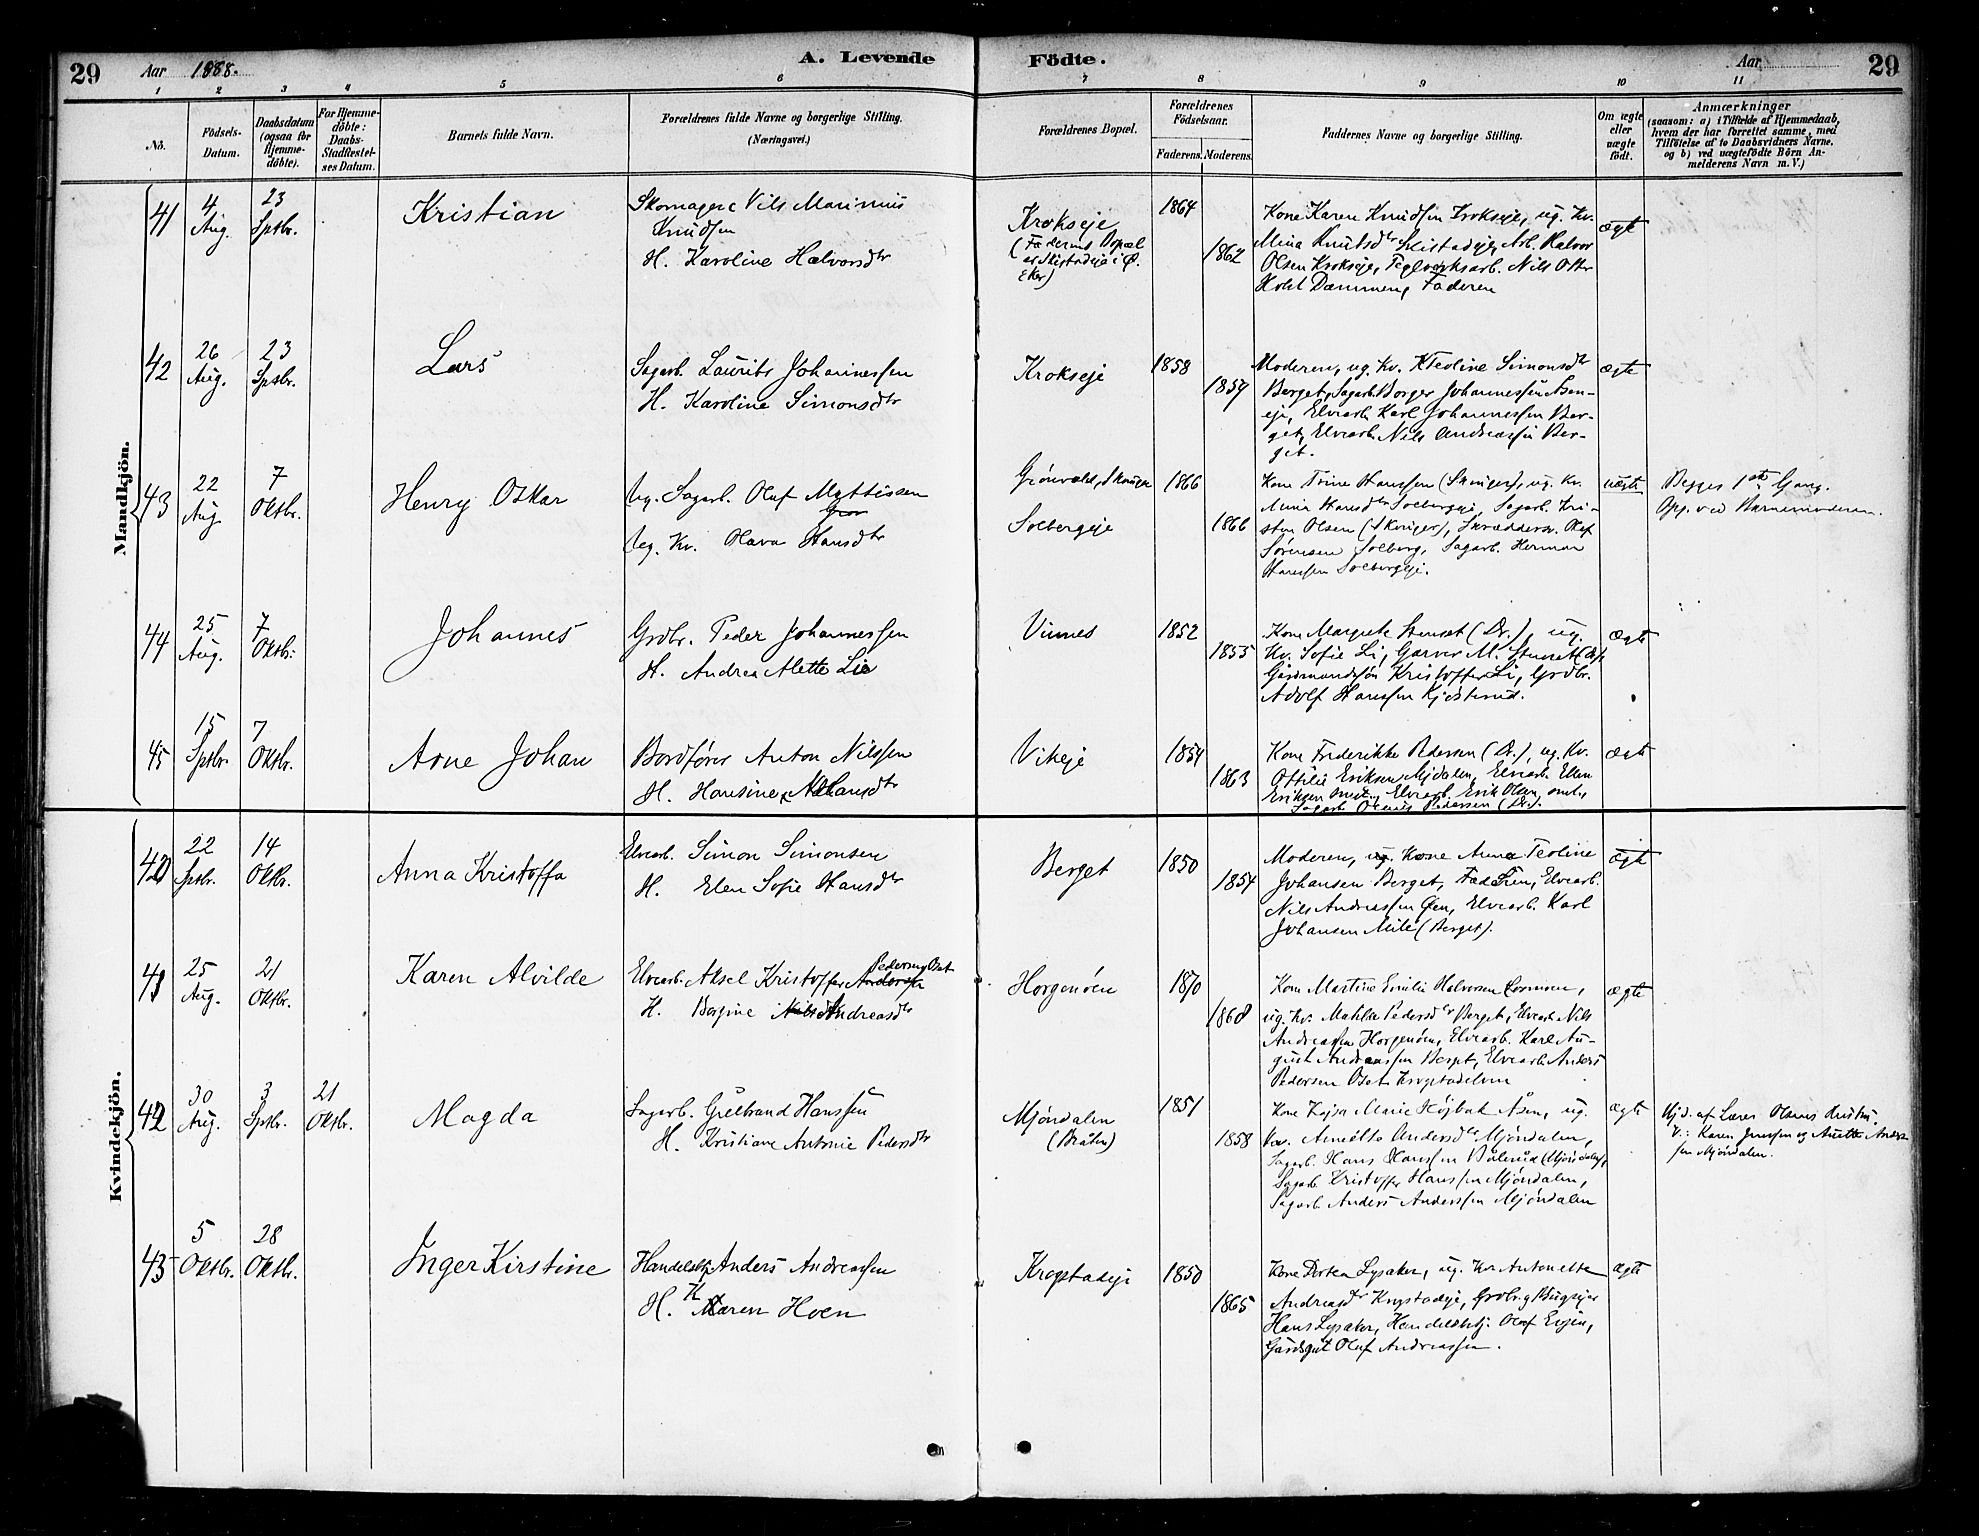 29
Aar 1888.
A. Levende
Födte.
Aar
29
1
2
3
4
5
6
7
8
9
10
11
No.
Födsels-
Datum.
Daabsdatum
(ogsaa for
Hjemme-
döbte).
For Hjemme-
döbte:
Daabs-
Stadfæstel-
ses Datum.
Barnets fulde Navn.
Forældrenes fulde Navne og borgerlige Stilling.
(Næringsvei.)
Forældrenes Bopæl.
Forældrenes
Födselsaar.
Faderens.
Moderens.
Faddernes Navne og borgerlige Stilling.
Om ægte
eller
uægte
födt.
Anmærkninger
(saasom: a) i Tilfælde af Hjemmedaab,
hvem der har forrettet samme, med
Tilföielse af to Daabsvidners Navne,
og b) ved uægtefödte Börn An-
melderens Navn m. V.)
Mandkjön.
41
4
Aug.
23
Sptbr.
Kristian
Skomager Nils Marinius
Knudsen
H. Karoline Halvorsdtr
Krokseje
(Faderens Bopæl
er Mistadeje i Ø.
Eker)
1864
1862
Kone Karen Knudsen Krokseje, ug. Kv.
Mina Knutsdtr Mistadeje, Arb. Halvor
Olsen Krokseje, Teglverksarb. Nils Otto
Holst Dæmmen, Faderen
ægte
42
26
Aug.
23
Sptbr.
Lars
Sagarb. Laurits Johannessen
H. Karoline Simonsdtr
Krokseje
1858
1859
Moderen, ug. Kv. Kteoline Simonsdtr
Berget, Sagarb. Borger Johannessen Aen-
eje, Elvearb. Karl Johannessen Ber-
get, Elvearb. Nils Andreassen Ber-
get.
ægte
43
22
Aug.
7
Oktbr.
Henry Oskar
Ug. Sagarb. Oluf Mattissen
Ug. Kv. Olava Hansdtr
Grönvold, Skouger
Solbergeje
1866
1866
Kone Trine Hanssen (Skouger), ug. Kv.
Mina Hansdtr Solbergeje, Sagarb. Kri-
sten Olsen (Skouger), Skræddersv. Olaf
Sörensen Solberg, Sagarb. Herman
Hanssen Solbergeje.
uægte
Begges 1ste Gang.
Opg. ved Barnemoderen.
44
25
Aug.
7
Oktbr.
Johannes
Grdbr. Peder Johannessen
H. Andrea Alette Lie
Vinnes
1852
1855
Kone Margrete Stenset (Dr.), ug.
Kv. Sofie Li, Garver M. Stenset (Dr.),
Gårdmandssön Kristoffer Li, Grdbr.
Adolf Hanssen Kjösterud.
ægte
45
15
Sptbr.
7
Oktbr.
Arne Johan
Bordförer Anton Nilssen
H. Hansine Hansdtr
Vikeje
1854
1863
Kone Frederikke Pedersen (Dr.), ug. Kv.
Ottilie Eriksen Mjdalen, Elvearb. Ellen
Eriksen smst., Elvearb. Erik Olsen, smst.,
Sagarb. Pedersen (Dr.).
ægte
Kvindekjön.
40
22
Sptbr.
14
Oktbr.
Anna Kristoffa
Elvearb. Simon Simonsen
H. Elen Sofie Hansdtr
Berget
1850
1854
Moderen, ug. Kone Anna Teoline
Johansen Berget, Faderen, Elvearb.
Nils Andreassen Øen, Elvearb. Karl
Johansen Mile (Berget).
ægte
41
25
Aug.
21
Oktbr.
Karen Alvilde
Elvearb. Aksel Kristoffer Andersen Pedersen Oset
H. Bergine Nilsd Andreasdtr
Horgenöen
1870
1868
Kone Martine Emilie Halvorsen Losmoen,
ug. Kv. Matilde Pedersdtr Berget, Elvearb. Nils
Andreassen Horgenöen, Elvearb. Karl Au-
gust Andreassen Berget, Elvearb. Anders
Pedersen Oset Krogstadelven
ægte
42
30
Aug.
3
Sptbr.
21
Oktbr.
Magda
Sagarb. Gulbrand Hanssen
H. Kristiane Antonie Pedersdtr
Mjöndalen
(Bråten)
1851
1858
Kone Kajsa Marie Höjbak Åsen, ug.
Kv. Annette Andersdtr Mjöndalen,
Sagarb. Hans Hanssen Bålerud (Mjöndalen),
Sagarb. Kristoffer Hanssen Mjöndalen,
Sagarb. Anders Anderssen Mjöndalen
ægte
Hjd. af Lærer
V.: Karen Jenssen og Anette Anders-
sen Mjöndalen.
43
5
Oktbr.
28
Oktbr.
Inger Kirstine
Handelsbtj. Anders Andreassen
H. Karen Hoen
Krogstadeje
1850
1865
Kone Dortea Lysaker, ug. Kv Antonette
Andreasdtr Krogstadeje, Grdbr. og Brugsejer
Hans Lysaker, Handelsbtj. Oluf Evjen,
Gårdsgut Oluf Andreassen.
ægte